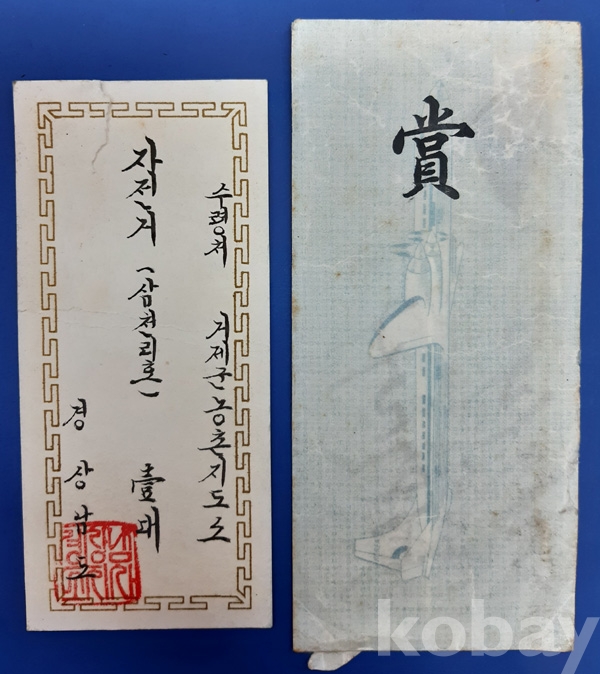 수령처 거제군농촌지도소
자전거 (삼천리호) 壹대
경상남도
賞
kobay